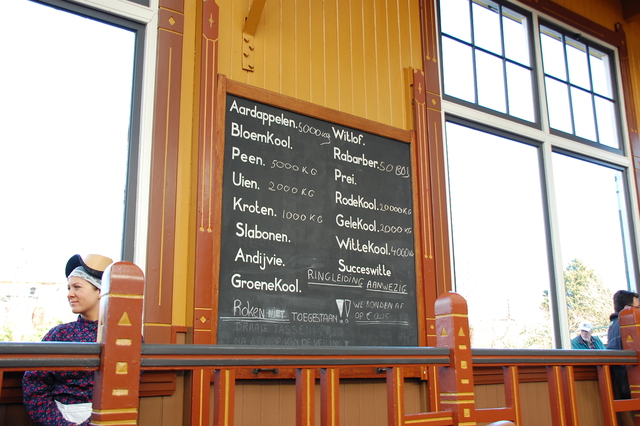 Aardappelen. 5000kg
BloemKool.
Peen. 5000 KG
Uien. 2000 KG
Kroten. 1000 KG
Slabonen.
Andijvie.
GroeneKool.
Witlof.
Rabarber. 50 BOS
Prei.
RodeKool. 20000KG
GeleKool. 2000 KG
WitteKool. 4000KG
Succeswitte
RINGLEIDING AANWEZIG
Roken niet TOEGESTAAN!!
WE RONDEN AF
OP € 0,05